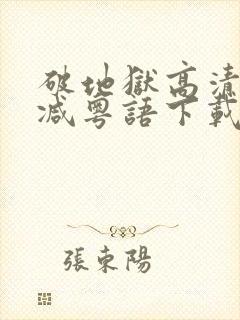 破地獄高清
減粵語下載
張東陽